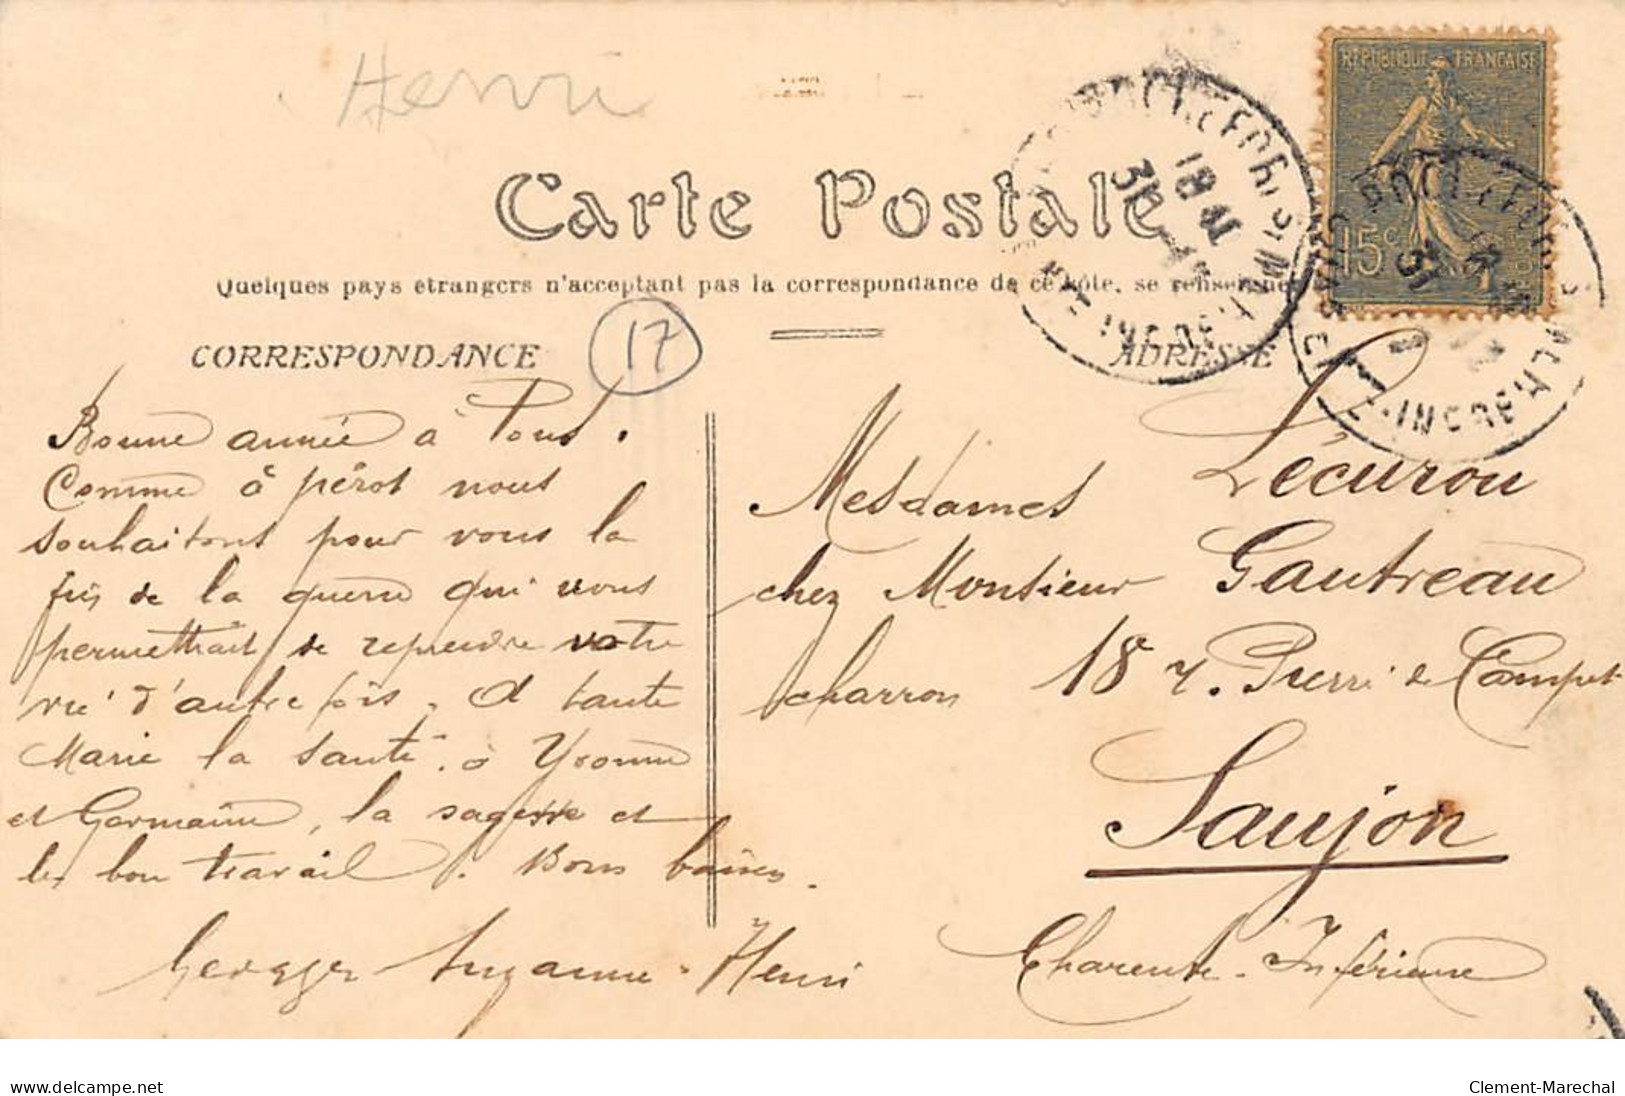 Henri
RÉPUBLIQUE FRANÇAISE
15c
Carte Postale
Quelques pays étrangers n'acceptant pas la correspondance de ce côté, se renseigner
17
CORRESPONDANCE
ADRESSE
Bonne année à Tous.
Comme à pérot nous
souhaitons pour vous la
fin de la guerre qui vous
permettrait de reprendre votre
vie d'autrefois. A tante
Marie la santé. à Yvonne
et Germaine, la sagesse et
le bon travail. Bons baisers.
Georges Suzanne Henri
Mesdames Lécurou
chez Monsieur Gautreau
charron 18 r. Pierre de Campet
Saujon
Charente-Inférieure
www.delcampe.net
Clement-Marechal